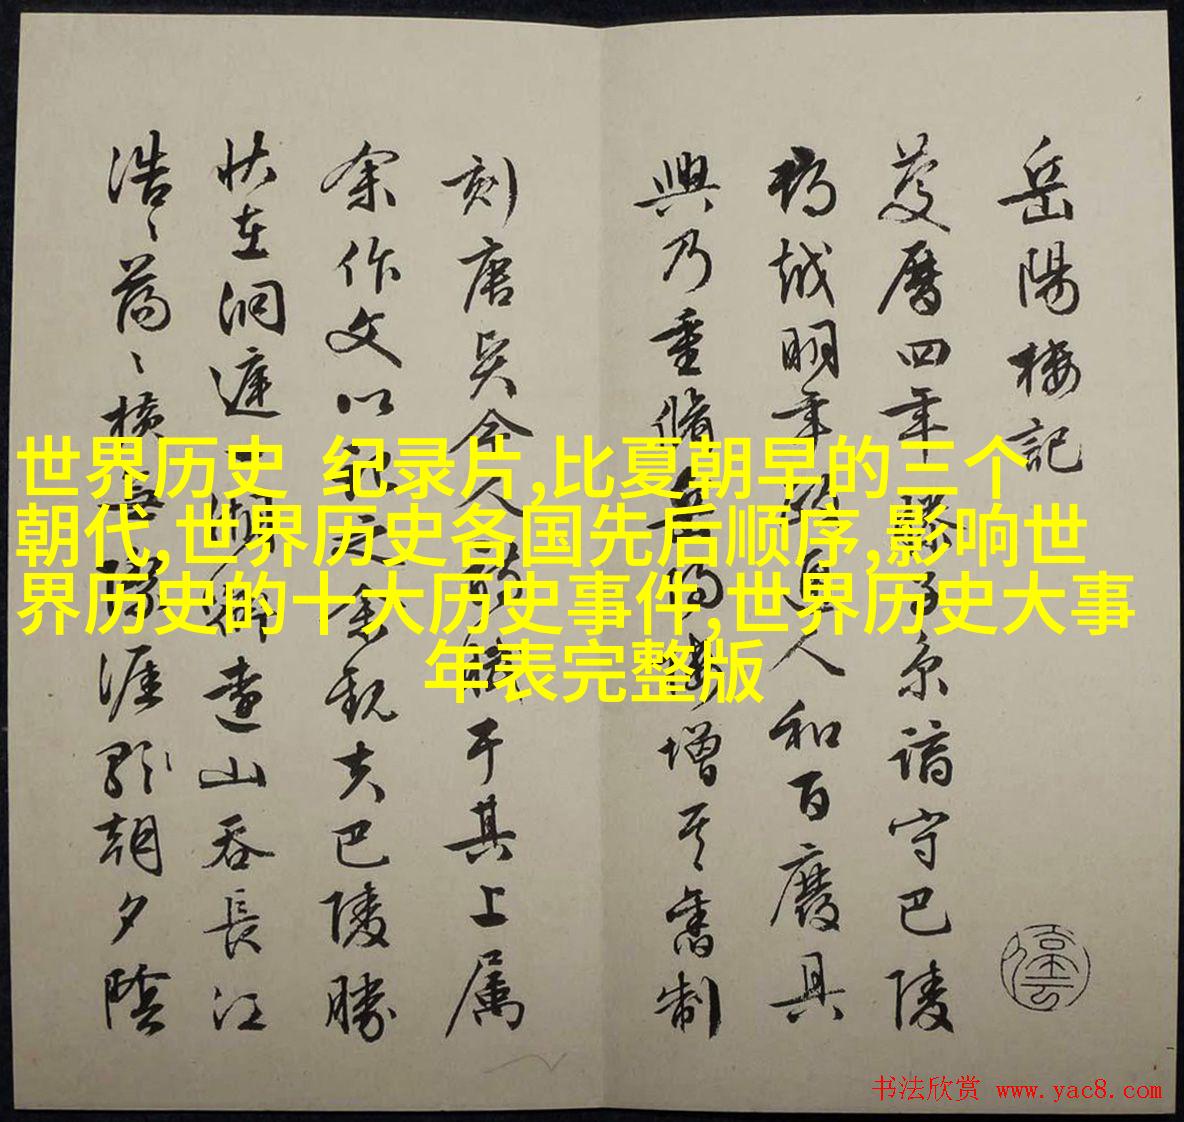 岳陽樓記
慶曆四年滕子京謫守巴陵
郡越明年政通人和百廢具
興乃重脩岳陽樓增其舊制
刻唐賢今人詩賦于其上屬
余作文以記之余觀夫巴陵勝
狀在洞庭一湖銜遠山吞長江
浩〻蕩〻橫無際涯朝夕陰
世界历史 纪录片,比夏朝早的三个
朝代,世界历史各国先后顺序,影响世
界历史的十大历史事件,世界历史大事
年表完整版
书法欣赏 www.yac8.com